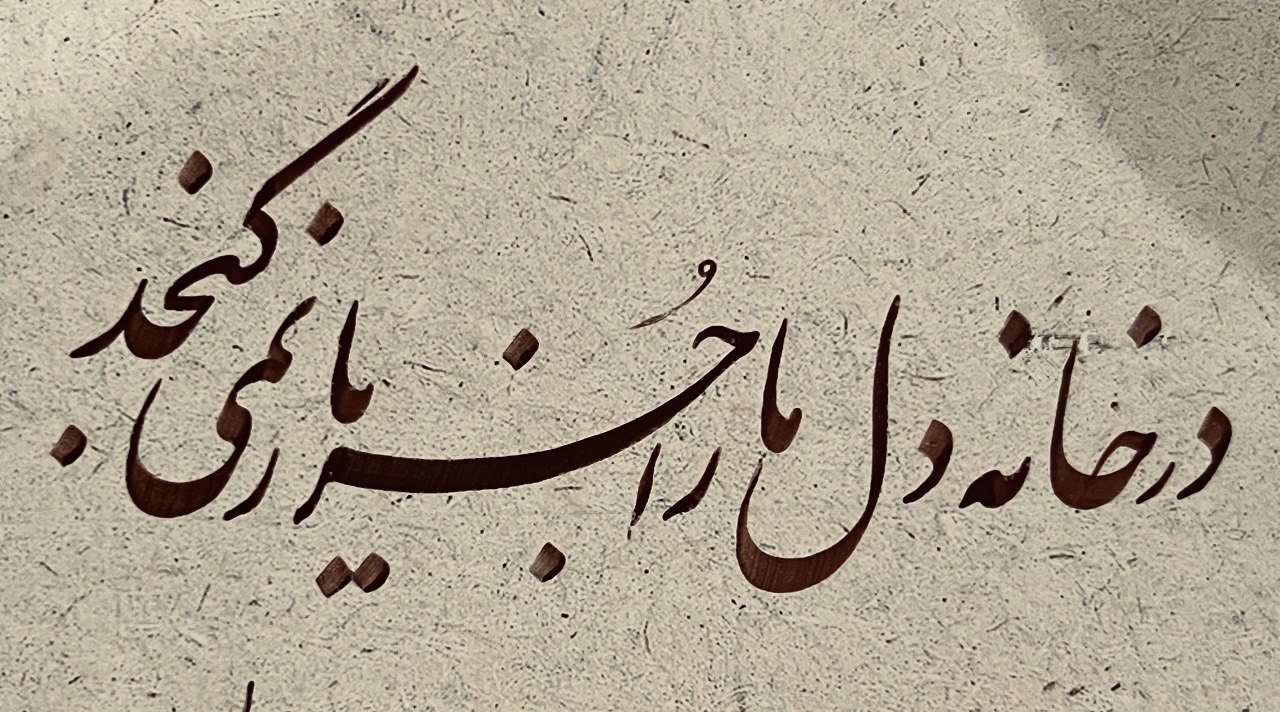 در خانه دل ما را جُز یار نمی گنجد